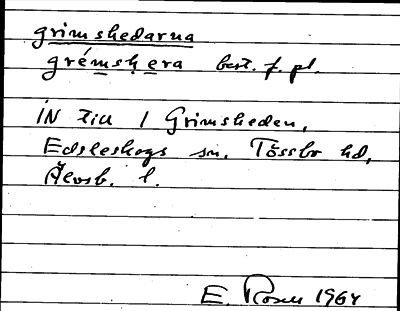 grimshedarna
grémshera best. f. pl.
IN till 1 Grimsheden,
Edsleskogs sn, Tössbo hd,
Älvsb. l.
E. Rosén 1964